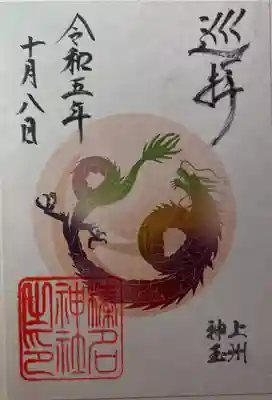 巡拝
令和五年
十月八日
上州
神玉
榛名
神社
之印